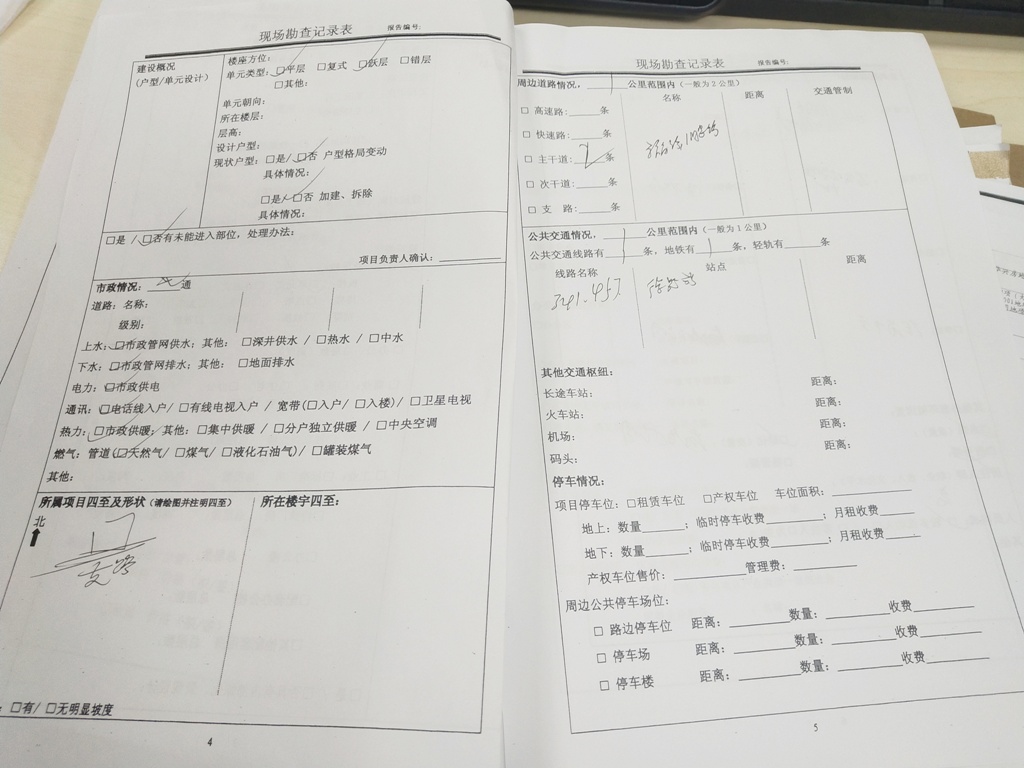 现场勘查记录表 报告编号:
建设概况
(户型/单元设计)
楼座方位:
单元类型: □平层 □复式 □跃层 □错层
□其他:
单元朝向:
所在楼层:
层高:
设计户型:
现状户型: □是/ □否 户型格局变动
具体情况:
□是/ □否 加建、拆除
具体情况:
□是 / □否有未能进入部位, 处理办法:
项目负责人确认: ________
市政情况: ______通
道路: 名称:
级别:
上水: □市政管网供水; 其他: □深井供水 / □热水 / □中水
下水: □市政管网排水; 其他: □地面排水
电力: □市政供电
通讯: □电话线入户/ □有线电视入户 / 宽带(□入户/ □入楼)/ □卫星电视
热力: □市政供暖; 其他: □集中供暖 / □分户独立供暖 / □中央空调
燃气: 管道(□天然气/ □煤气/ □液化石油气)/ □罐装煤气
其他:
所属项目四至及形状 (请绘图并注明四至) 所在楼宇四至:
北
支路
: □有/ □无明显坡度
4
现场勘查记录表 报告编号:
周边道路情况, ______公里范围内 (一般为2公里)
名称 距离 交通管制
□ 高速路: _____条
□ 快速路: _____条
□ 主干道: _____条
□ 次干道: _____条
□ 支 路: _____条
公共交通情况, ______公里范围内 (一般为1公里)
公共交通线路有______条, 地铁有______条, 轻轨有______条
线路名称 站点 距离
其他交通枢纽:
长途车站: 距离:
火车站: 距离:
机场: 距离:
码头: 距离:
停车情况:
项目停车位: □租赁车位 □产权车位 车位面积: ________
地上: 数量______; 临时停车收费________; 月租收费_____
地下: 数量______; 临时停车收费________; 月租收费_____
产权车位售价: ________ 管理费: ________
周边公共停车场位:
□ 路边停车位 距离: ________数量: ________收费________
□ 停车场 距离: ________数量: ________收费________
□ 停车楼 距离: ________数量: ________收费________
5